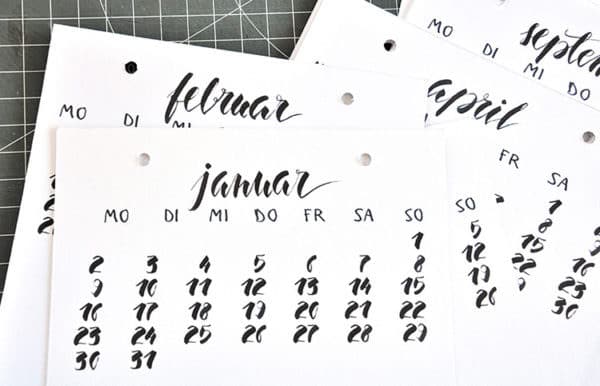 septem
MO DI MI DO
april
FR SA
februar
MO DI MI
SO
5
12
19
26
januar
MO DI MI DO FR SA SO
1
2 3 4 5 6 7 8
9 10 11 12 13 14 15
16 17 18 19 20 21 22
23 24 25 26 27 28 29
30 31